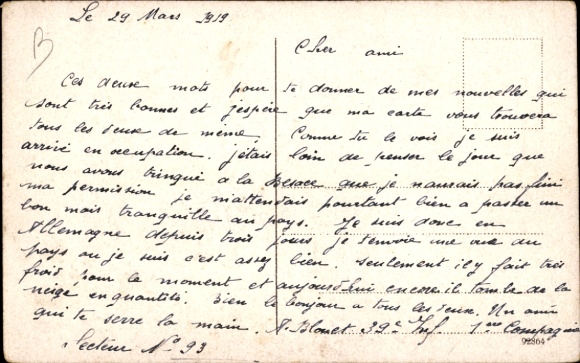 Le 29 Mars 1919
B
Cher ami
Ces deux mots pour te donner de mes nouvelles qui
sont très bonnes et j'espère que ma carte vous trouvera
tous les deux de même. Comme tu le vois je suis
arrivé en ocupation. j'étais loin de penser le jour que
nous avons trinqué a la que je naurais pas fini
ma permission je m'attendais pourtant bien a passer un
bon mois tranquille au pays. Je suis donc en
Allemagne depuis trois jours je t'envoie une vue du
pays ou je suis c'est assez bien seulement il y fait très
froid, pour le moment et aujourd'hui encore il tombe de la
neige en quantité. Bien le bonjour a tous les deux. Un ami
qui te serre la main. A. Blouet 39e Inf. 1ere Compagnie
Secteur No 93
92864